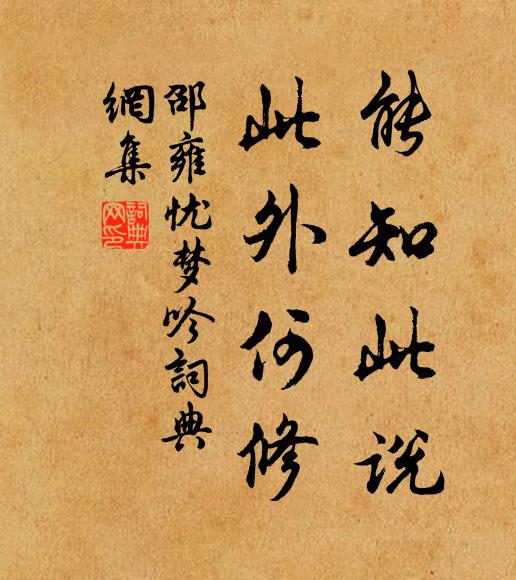 能知此说
此外何修
邵雍忧梦吟詞典
網集
詞典
网印